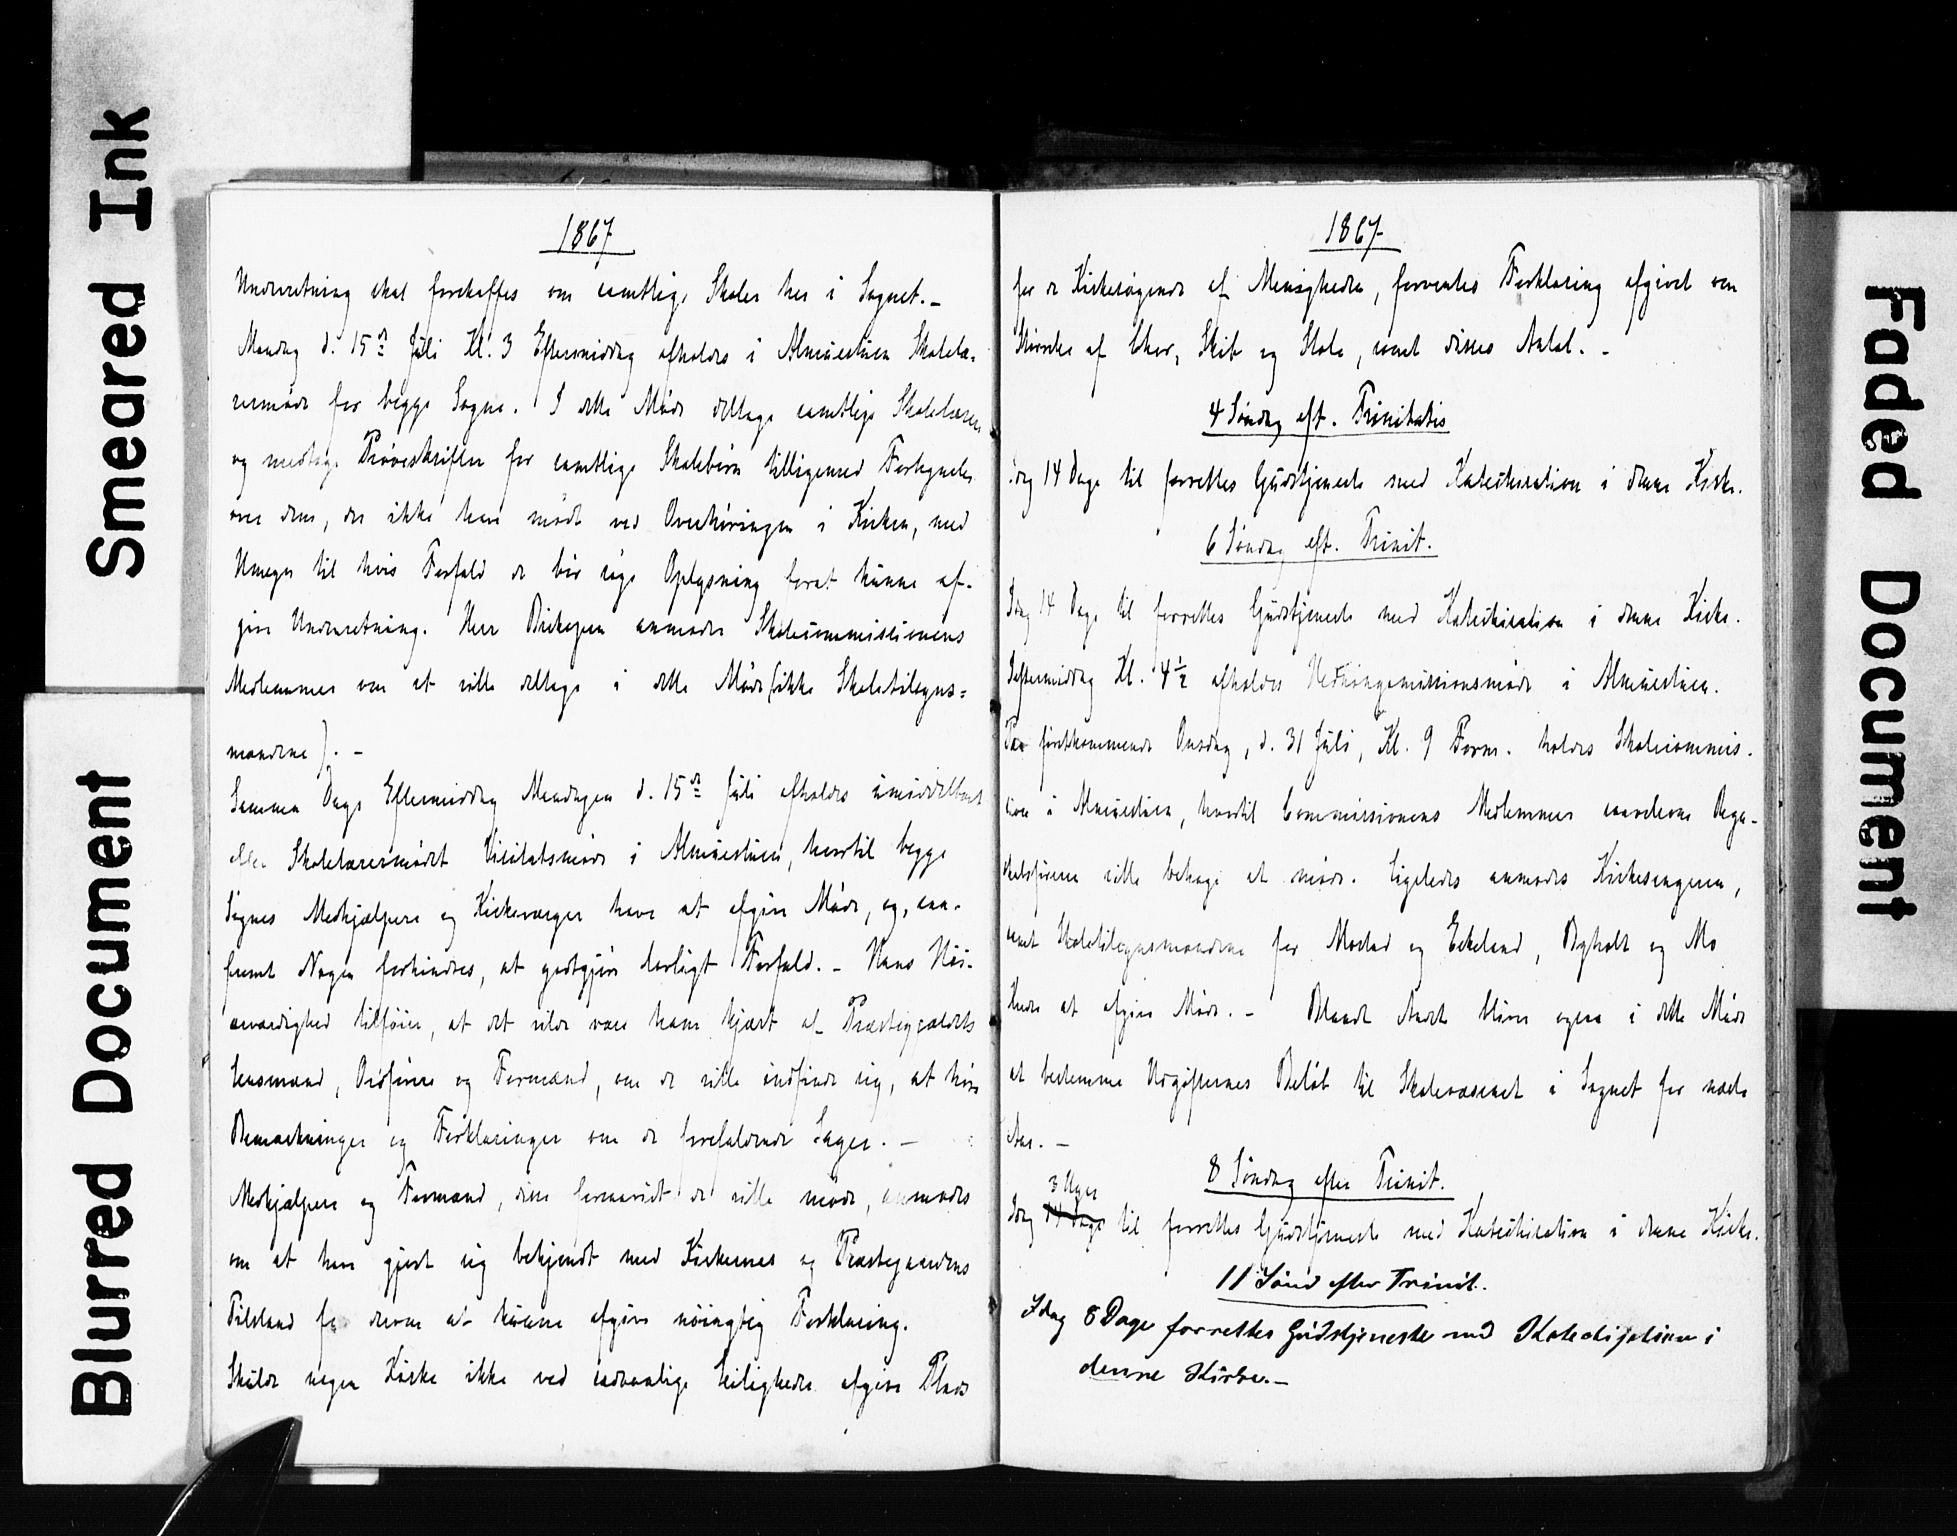 Smeared Ink
Blurred Document
1867
Underretning skal forskaffes om samtlige Skoler her i Sognet. –
Mandag d. 15de Juli Kl. 3 Eftermiddag afholdes i Almuestuen Skolelæ-
rermøde for begge Sogne. I dette Møde deltage samtlige Skolelærere
og medtage Prøveskrifter for samtlige Skolebørn tilligemed Fortegnelse
over dem, der ikke have mødt ved Overhøringen i Kirken, med
Hensyn til hvis Forfald de bør søge Oplysning forat kunne af-
give Underretning. Herr Biskopen anmoder Skolecommissionens
Medlemmer om at ville deltage i dette Møde (ikke Skoletilsyns=
mændene). –
Samme Dags Eftermiddag Mandagen d. 15de Juli afholdes umiddelbart
efter Skolelærermødet Visitatsmøde i Almuestuen, hvortil begge
Sognes Medhjælpere og Kirkeværger have at afgive Møde, og, saa-
fremt Nogen forhindres, at godtgjøre lovligt Forfald. – Hans Høi-
ærværdighed tilføier, at det vilde være ham kjært af Præstegjældets
Lensmænd, Ordførere og Formænd, om de ville indfinde sig, at høre
Bemærkninger og Forklaringer om de forefaldende Sager. –
Medhjælpere og Formænd, disse forsaavidt de ville møde, anmodes
om at have gjort sig bekjendt med Kirkernes og Præstegaardens
Tilstand for derom at kunne afgive nøiagtig Forklaring.
Skulde nogen Kirke ikke ved sædvanlige Leiligheder afgive Plads
1867
for de Kirkesøgende af Menigheden, forventes Forklaring afgivet om
Størrelse af Chor, Skib og Stole, samt disses Antal. –
4 Søndag eft. Trinitatis
Idag 14 Dage til forrettes Gudstjeneste med Katechisation i denne Kirke.
6 Søndag eft. Trinit.
Idag 14 Dage til forrettes Gudstjeneste med Katechisation i denne Kirke.
Ieftermiddag Kl. 4½ afholdes Hedningemissionsmøde i Almuestuen.
førstkommende Onsdag, d. 31 Juli, Kl. 9 Form. holdes Skolecommis-
sion i Almuestuen, hvortil Commissionens Medlemmer saavelsom
ville behage at møde. Ligeledes anmodes Kirkesangeren,
samt Skoletilsynsmændene for og Eskeland, Bgholt og Mo
at afgive Møde. – Blandt Andet bliver ogsaa i dette Møde
at bestemme Udgifternes Beløb til Skolevæsenet i Sognet for næste
Aar. –
8 Søndag efter Trinit.
3 Uger
Idag 14 Dage til forrettes Gudstjeneste med Katechisation i denne Kirke.
11 Sønd efter Trinit.
Idag 8 Dage forrettes Gudstjeneste med Katechisation i
denne Kirke. –
Faded Document